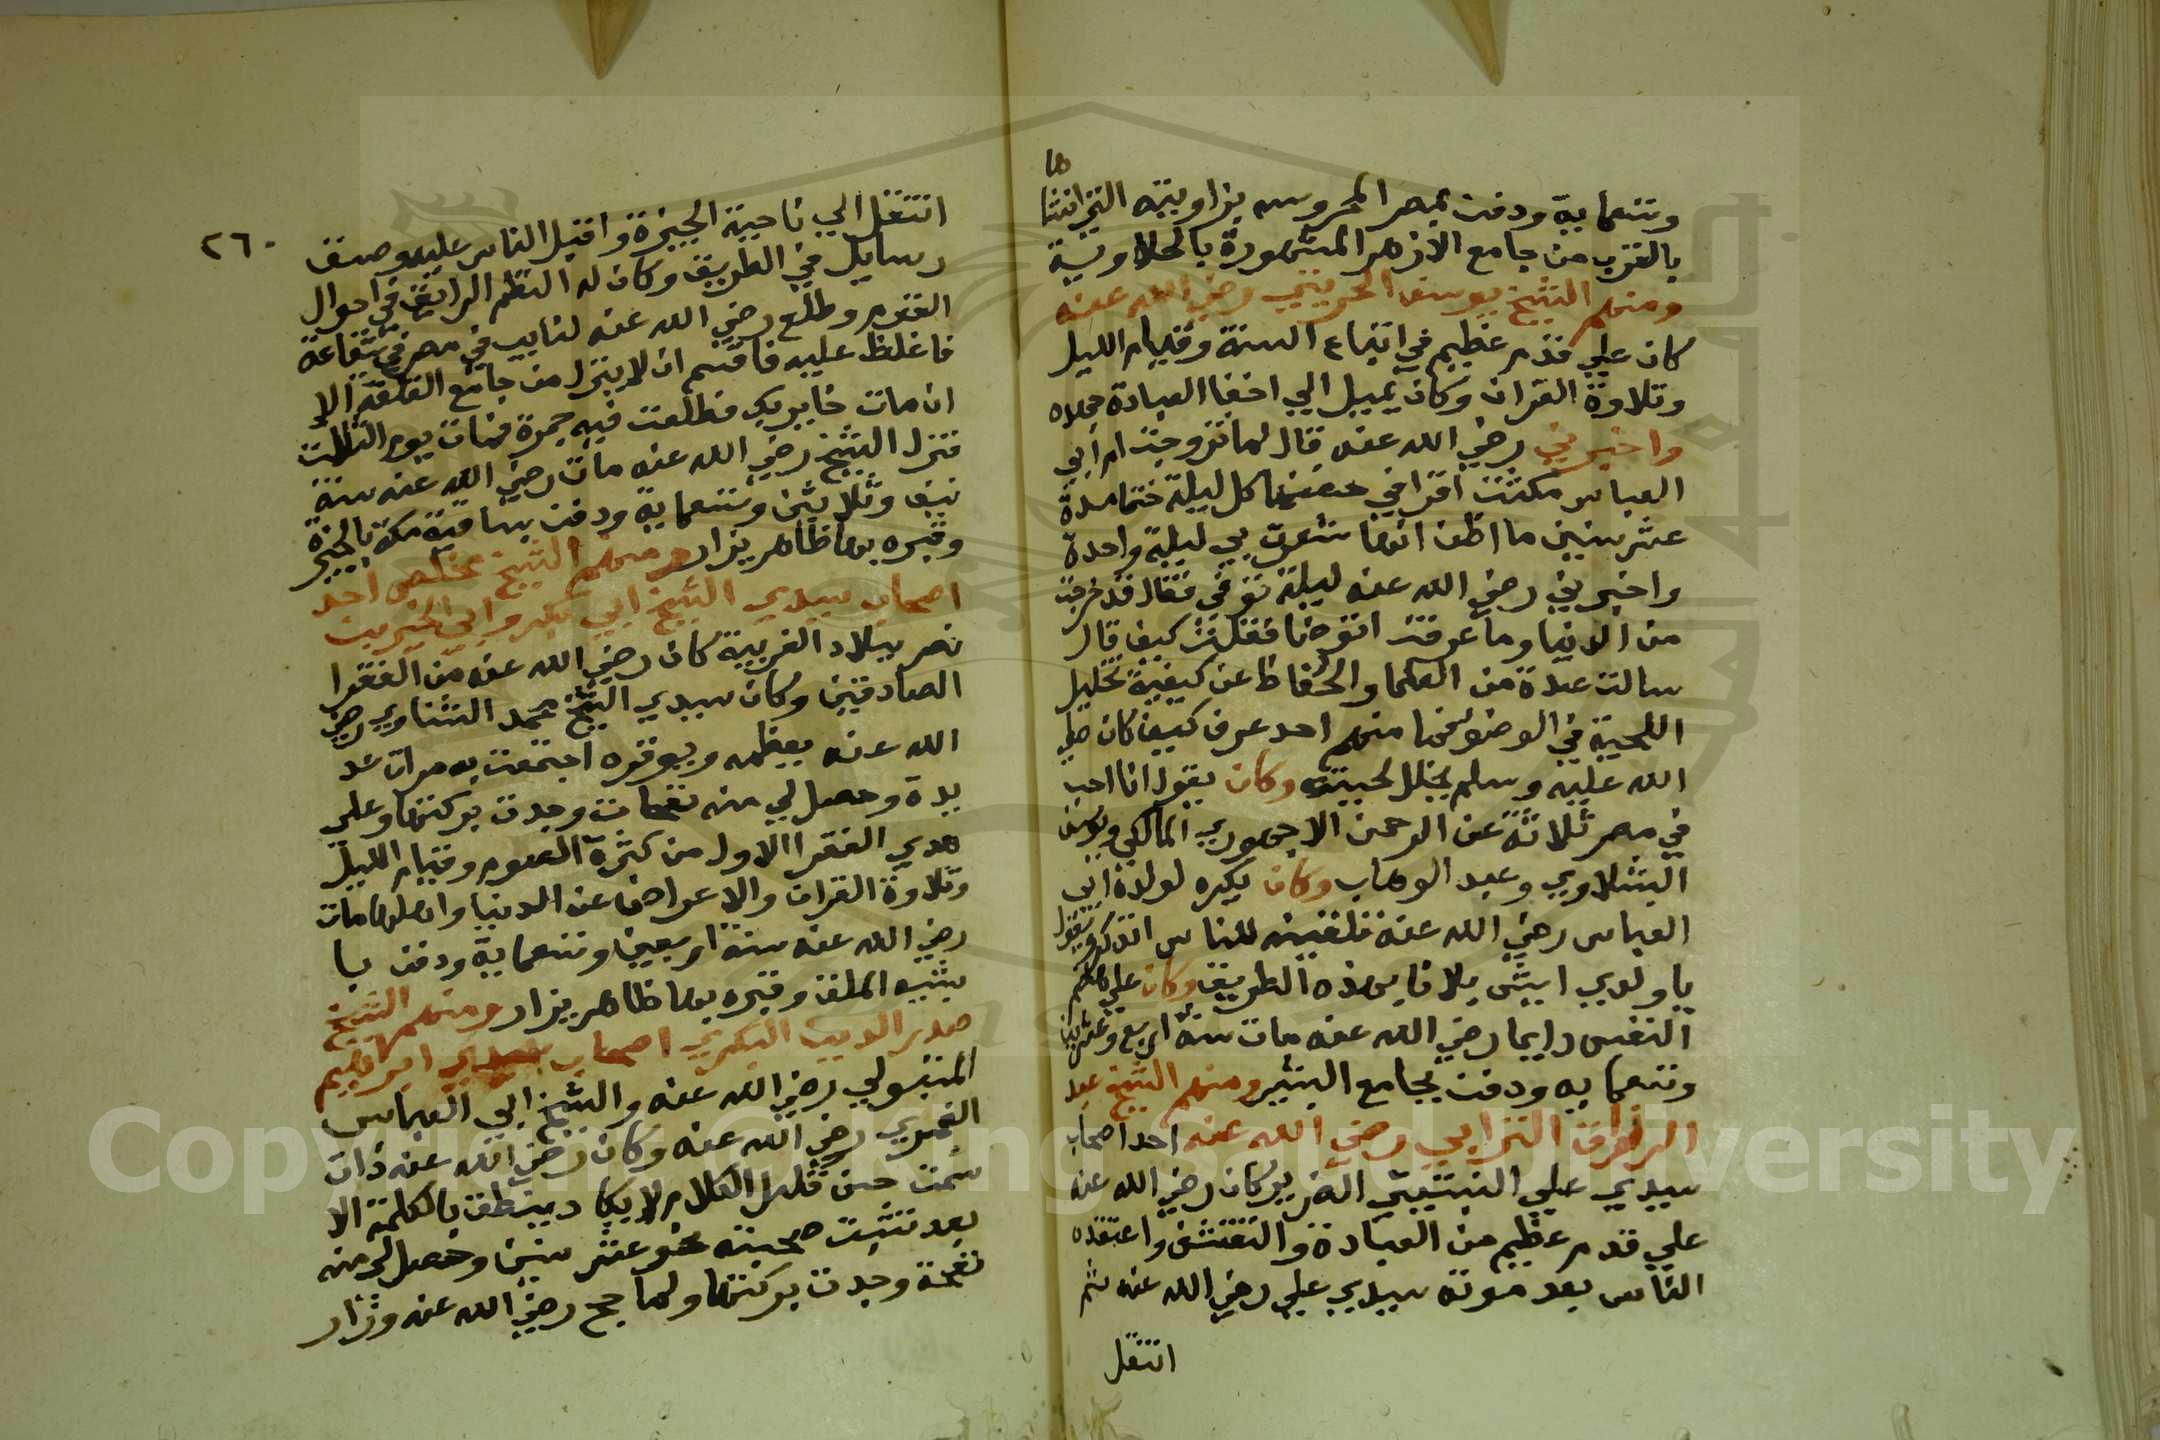 وتسعماية ودفن بمصر المحروسه بزاويته التي انشاها
بالقرب من جامع الازهر المشهورة بالحلاوية
ومنهم الشيخ يوسف الحريثي رضي الله عنه
كان علي قدم عظيم في اتباع السنة وقيام الليل
وتلاوة القران وكان يميل الي اخفا العبادة جهده
واخبرني رضي الله عنه قال لما تزوجت ام ابي
العباس مكثت اقرا في حضنها كل ليلة ختما مدة
عشر سنين ما اظن انها شعرت بي ليلة واحدة
واخبرني رضي الله عنه ليلة توفي فقال قد خرجت
من الدنيا وما عرفت اتوضا فقلت كيف قال
سالت عدة من العلما والحفاظ عن كيفية تخليل
اللحية في الوضوء فما منهم احد عرف كيف كان صلي
الله عليه وسلم يخلل لحيته وكان يقول انا احب
في مصر ثلاثة عن الرحمن الاجهوري المالكي ويوسف
البشلاوي وعبد الوهاب وكان يكره لولده ابي
العباس رضي الله عنه تلقينه للناس الذكر ويقول
يا ولدي ايش بلانا بهذه الطريق وكان علي هضم
النفس دايما رضي الله عنه مات سنة اربع وعشرين
وتسعمايه ودفن بجامع البشير ومنهم الشيخ عبد
الرزاق الترابي رضي الله عنه احد اصحاب
سيدي علي النبتيتي الضرير كان رضي الله عنه
علي قدم عظيم من العبادة والتقشف واعتقده
الناس بعد موته سيدي علي رضي الله عنه ثم
انتقل
٢٦٠
انتقل الي ناحية الجيزة واقبل الناس عليه وصنف
رسايل في الطريق وكان له النظم الرايق في احوال
القوم وطلع رضي الله عنه لنايب في مصر في شفاعة
فاغلظ عليه فاقسم ان لا ينزل من جامع القلعة الا
ان مات خايربك فطلعت فيه جمرة فمات يوم الثالث
فنزل الشيخ رضي الله عنه مات رضي الله عنه سنة
نيف وثلاثين وتسعماية ودفن بساقية مكة بالجيزة
وقبره بها ظاهر يزار ومنهم الشيخ مخلص احد
اصحاب سيدي الشيخ ابي بكر وابي الخير بن
نصر ببلاد الغربية كان رضي الله عنه من الفقرا
الصادقين وكان سيدي الشيخ محمد الشناوي رضي
الله عنه يعظمه ويوقره اجتمعت به مرات عد
يدة وحصل لي منه نفحات وجدت بركتها وعلي
هدي الفقرا الاول من كثرة الصوم وقيام الليل
وتلاوة القران والاعراض عن الدنيا واهلها مات
رضي الله عنه سنة اربعين وتسعماية ودفن با
بشيه الملق وقبره بها ظاهر يزار ومنهم الشيخ
صدر الدين البكري اصحاب سيدي ابراهيم
المتبولي رضي الله عنه والشيخ ابي العباس
الغمري رضي الله عنه وكان رضي الله عنه ذات
سمت حسن قليل الكلام لا يكاد ينطق بالكلمة الا
بعد تثبت صحبته نحو عشر سنين وحصل لي منه
نفحة وجدت بركتها ولما حج رضي الله عنه وزار